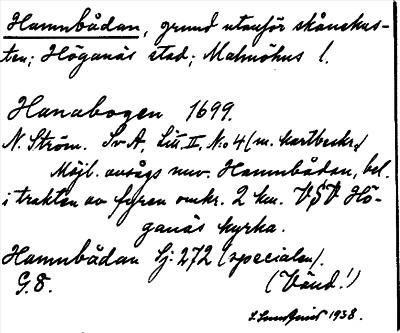 Hamnbådan, grund utanför skånekus-
ten; Höganäs stad; Malmöhus l.
Hanabogen 1699.
N. Ström. SvA, Litt. II, N:o 4 (m. kartbeskr.)
Möjl. avsågs nuv. Hamnbådan, bel.
i trakten av fyren omkr. 2 km. VSV Hö-
ganäs kyrka.
Hamnbådan Sj. 272 (specialen).
G. 8. (Vänd!)
1938.